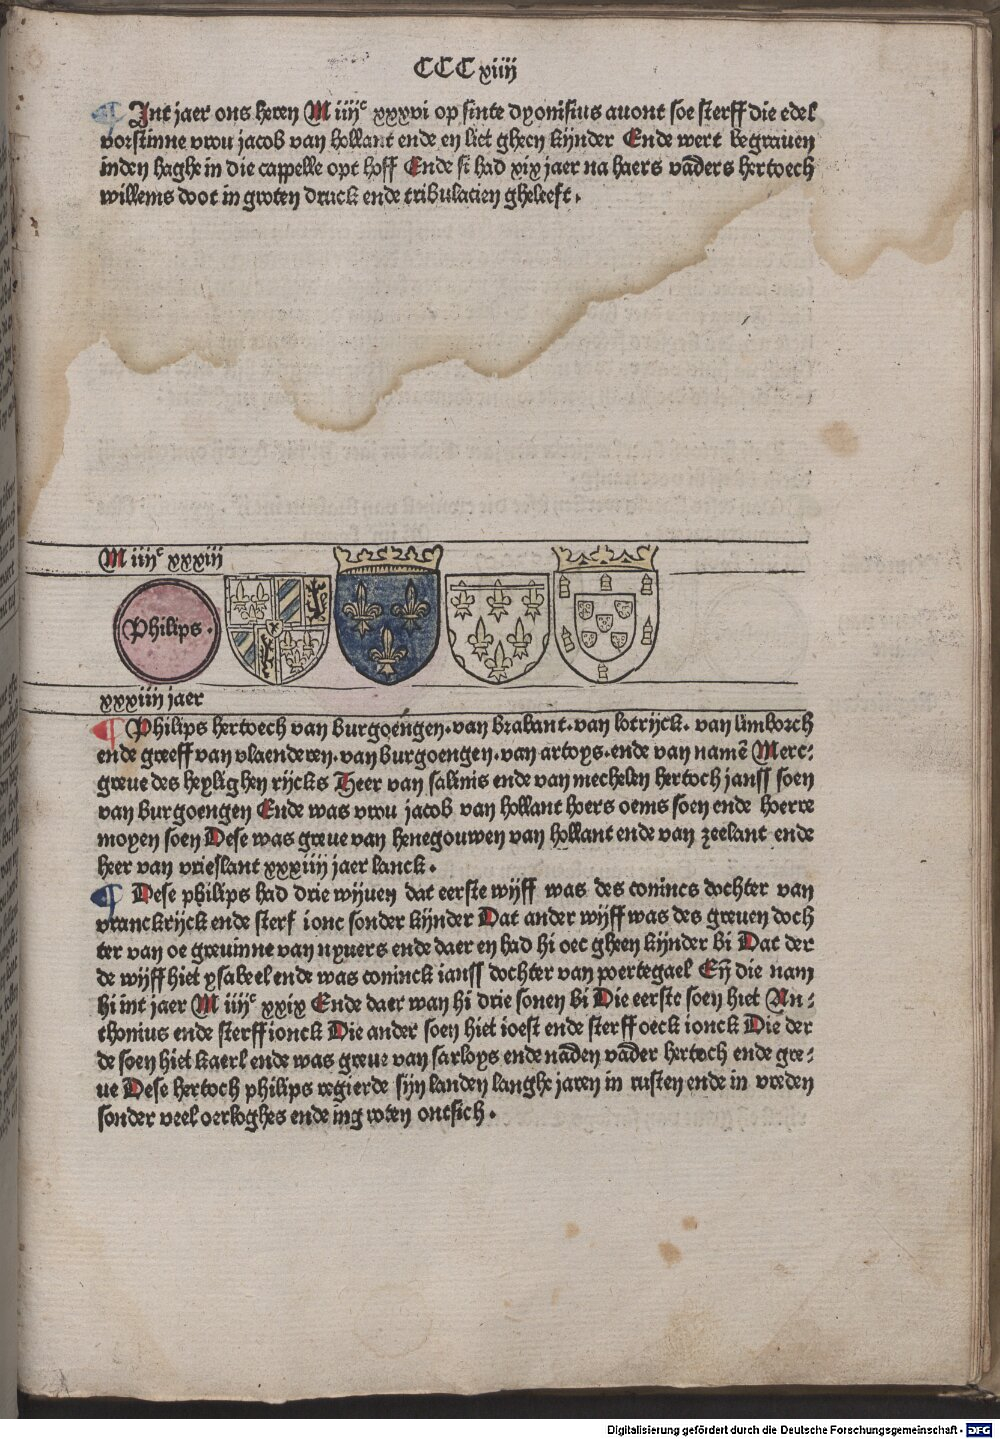 CCCxiiij
¶ Int jaer ons heren M iiijᶜ xxxvi op sinte dyonisius auont soe sterff die edel
vorstinne vrou jacob van hollant ende en liet gheen kijnder Ende wert begrauen
inden haghe in die cappelle opt hoff Ende si had xix jaer na haers vad̄ers hertoech
willems doot in groten druck ende tribulacien gheleeft.
M iiijᶜ xxxiij
Philips.
xxxiiij jaer
¶ Philips hertoech van burgoengen. van brabant. van lotrijck. van limborch
ende greeff van vlaenderen. van burgoengen. van artoys. ende van namē Merc:
greue des heylighen rijcks Heer van salinis ende van mechelen hertoch janss soen
van burgoengen Ende was vrou jacob van hollant hoers oems soen ende hoerre
moyen soen Dese was greue van henegouwen van hollant ende van zeelant ende
heer van vrieslant xxxiiij jaer lanck.
¶ Dese philips had drie wijuen dat eerste wijff was des conincs dochter van
vranckrijck ende sterf ionc sonder kijnder Dat ander wijff was des greuen doch
ter van oe greuinne van nyuers ende daer en had hi oec gheen kijnder bi Dat der
de wijff hiet ysabeel ende was coninck ianss dochter van poertegael Eñ die nam
hi int jaer M iiijᶜ xxix Ende daer wan hi drie sonen bi Die eerste soen hiet An:
thonius ende sterff ionck Die ander soen hiet ioest ende sterff oeck ionck Die der
de soen hiet kaerl ende was greue van sarloys ende nad̄en vad̄er hertoch ende gre:
ue Dese hertoch philips regierde sijn landen langhe jaren in rusten ende in vreden
sonder veel oerloghes ende in groten ontsich.
Digitalisierung gefördert durch die Deutsche Forschungsgemeinschaft - DFG